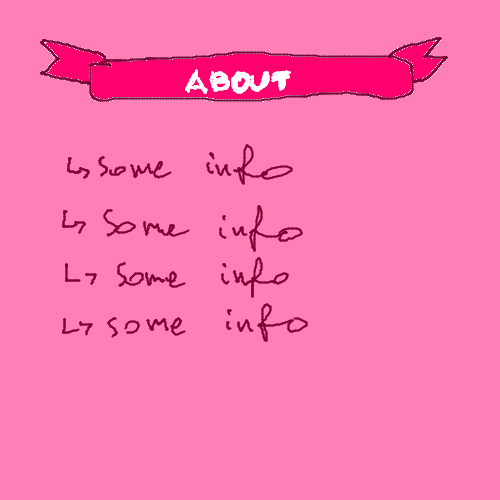 ABOUT
↳ some info
↳ some info
↳ some info
↳ some info